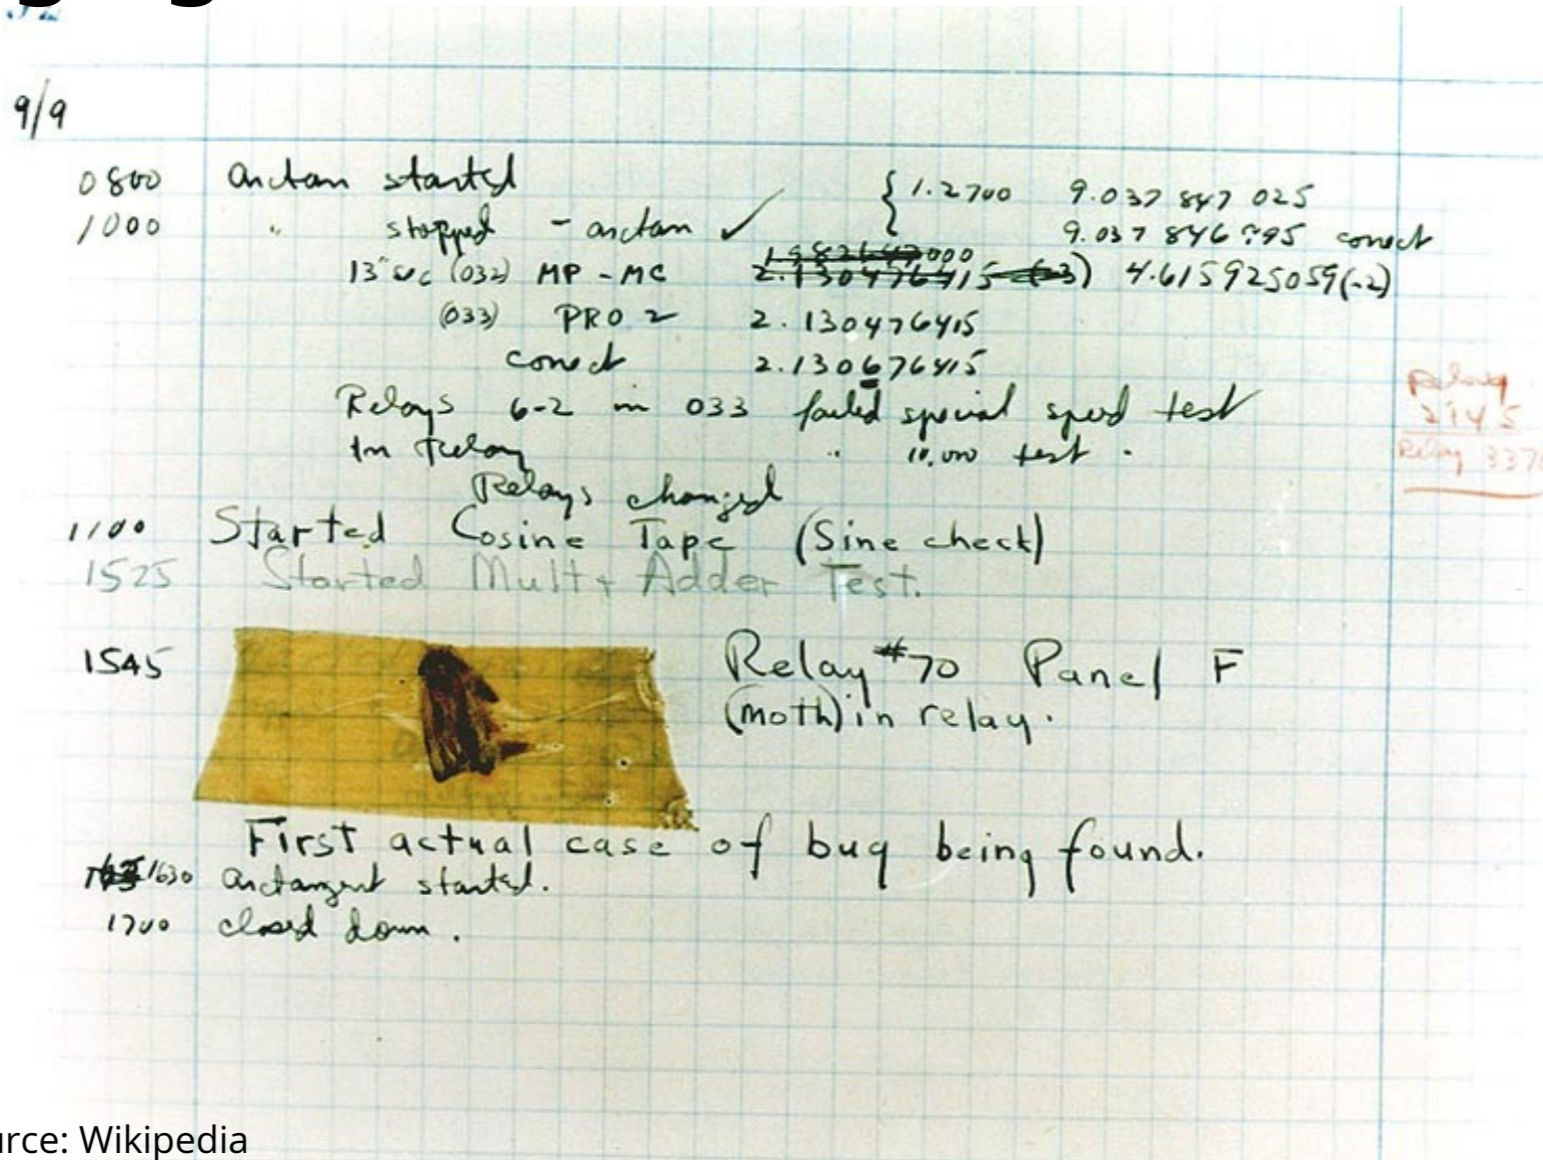 9/9
0800 arctan started { 1.2700 9.037 847 025
1000 " stopped - arctan ✓ 9.037 846 795 correct
13" sec (032) MP - MC 2.130476415 (-3) 4.615925059(-2)
(033) PRO 2 2.130476415
correct 2.130676415
Relays 6-2 in 033 failed special speed test
In Relay " 10,000 test .
Relay
2145
Relay 3370
Relays changed
1100 Started Cosine Tape (Sine check)
1525 Started Mult + Adder Test.
1545 Relay #70 Panel F
(moth) in relay.
First actual case of bug being found.
1630 arctangent started.
1700 closed down .
urce: Wikipedia